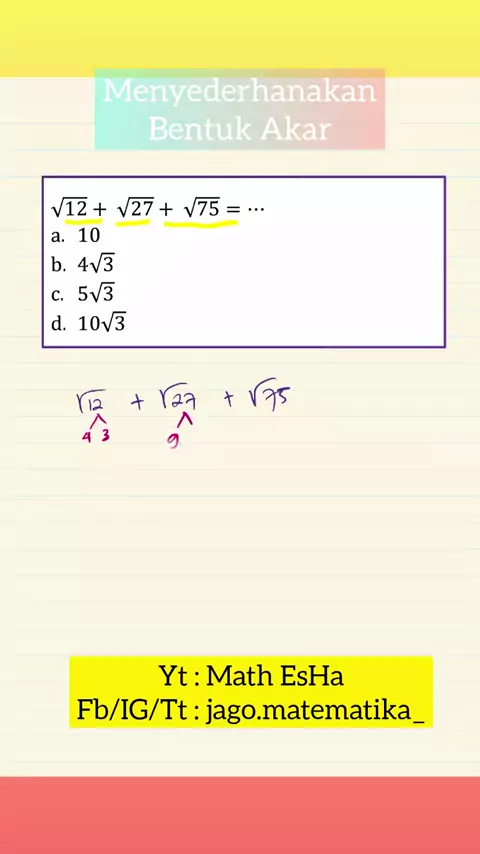 Menyederhanakan
Bentuk Akar
√12 + √27 + √75 = ⋯
a. 10
b. 4√3
c. 5√3
d. 10√3
√12 + √27 + √75
4 3 9
Yt : Math EsHa
Fb/IG/Tt : jago.matematika_